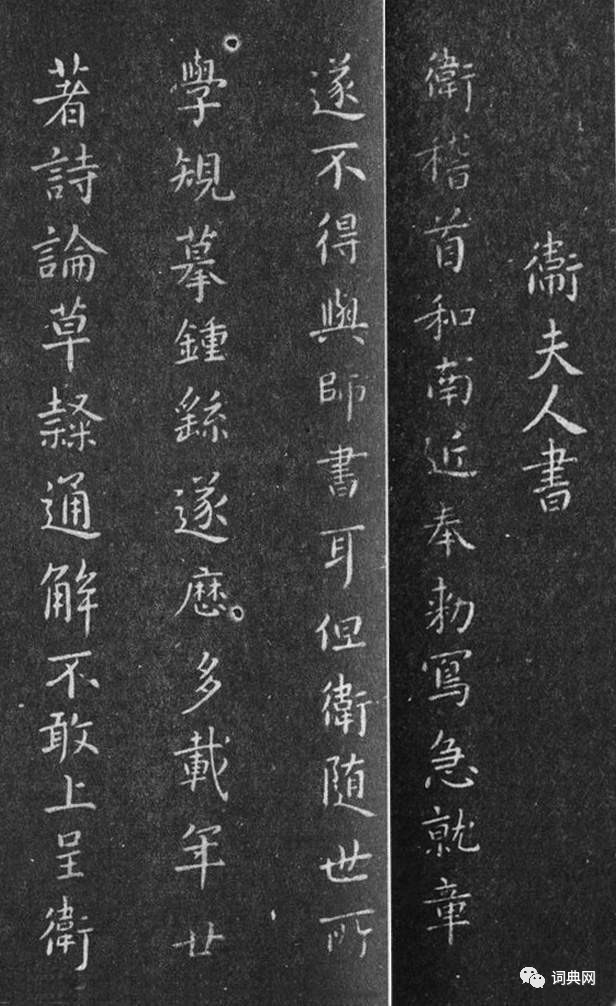 衛夫人書
衛稽首和南近奉勅寫急就章
遂不得與師書耳但衛随世所
學規摹鍾繇遂歷多載年廿
著詩論草隸通解不敢上呈衛
词典网